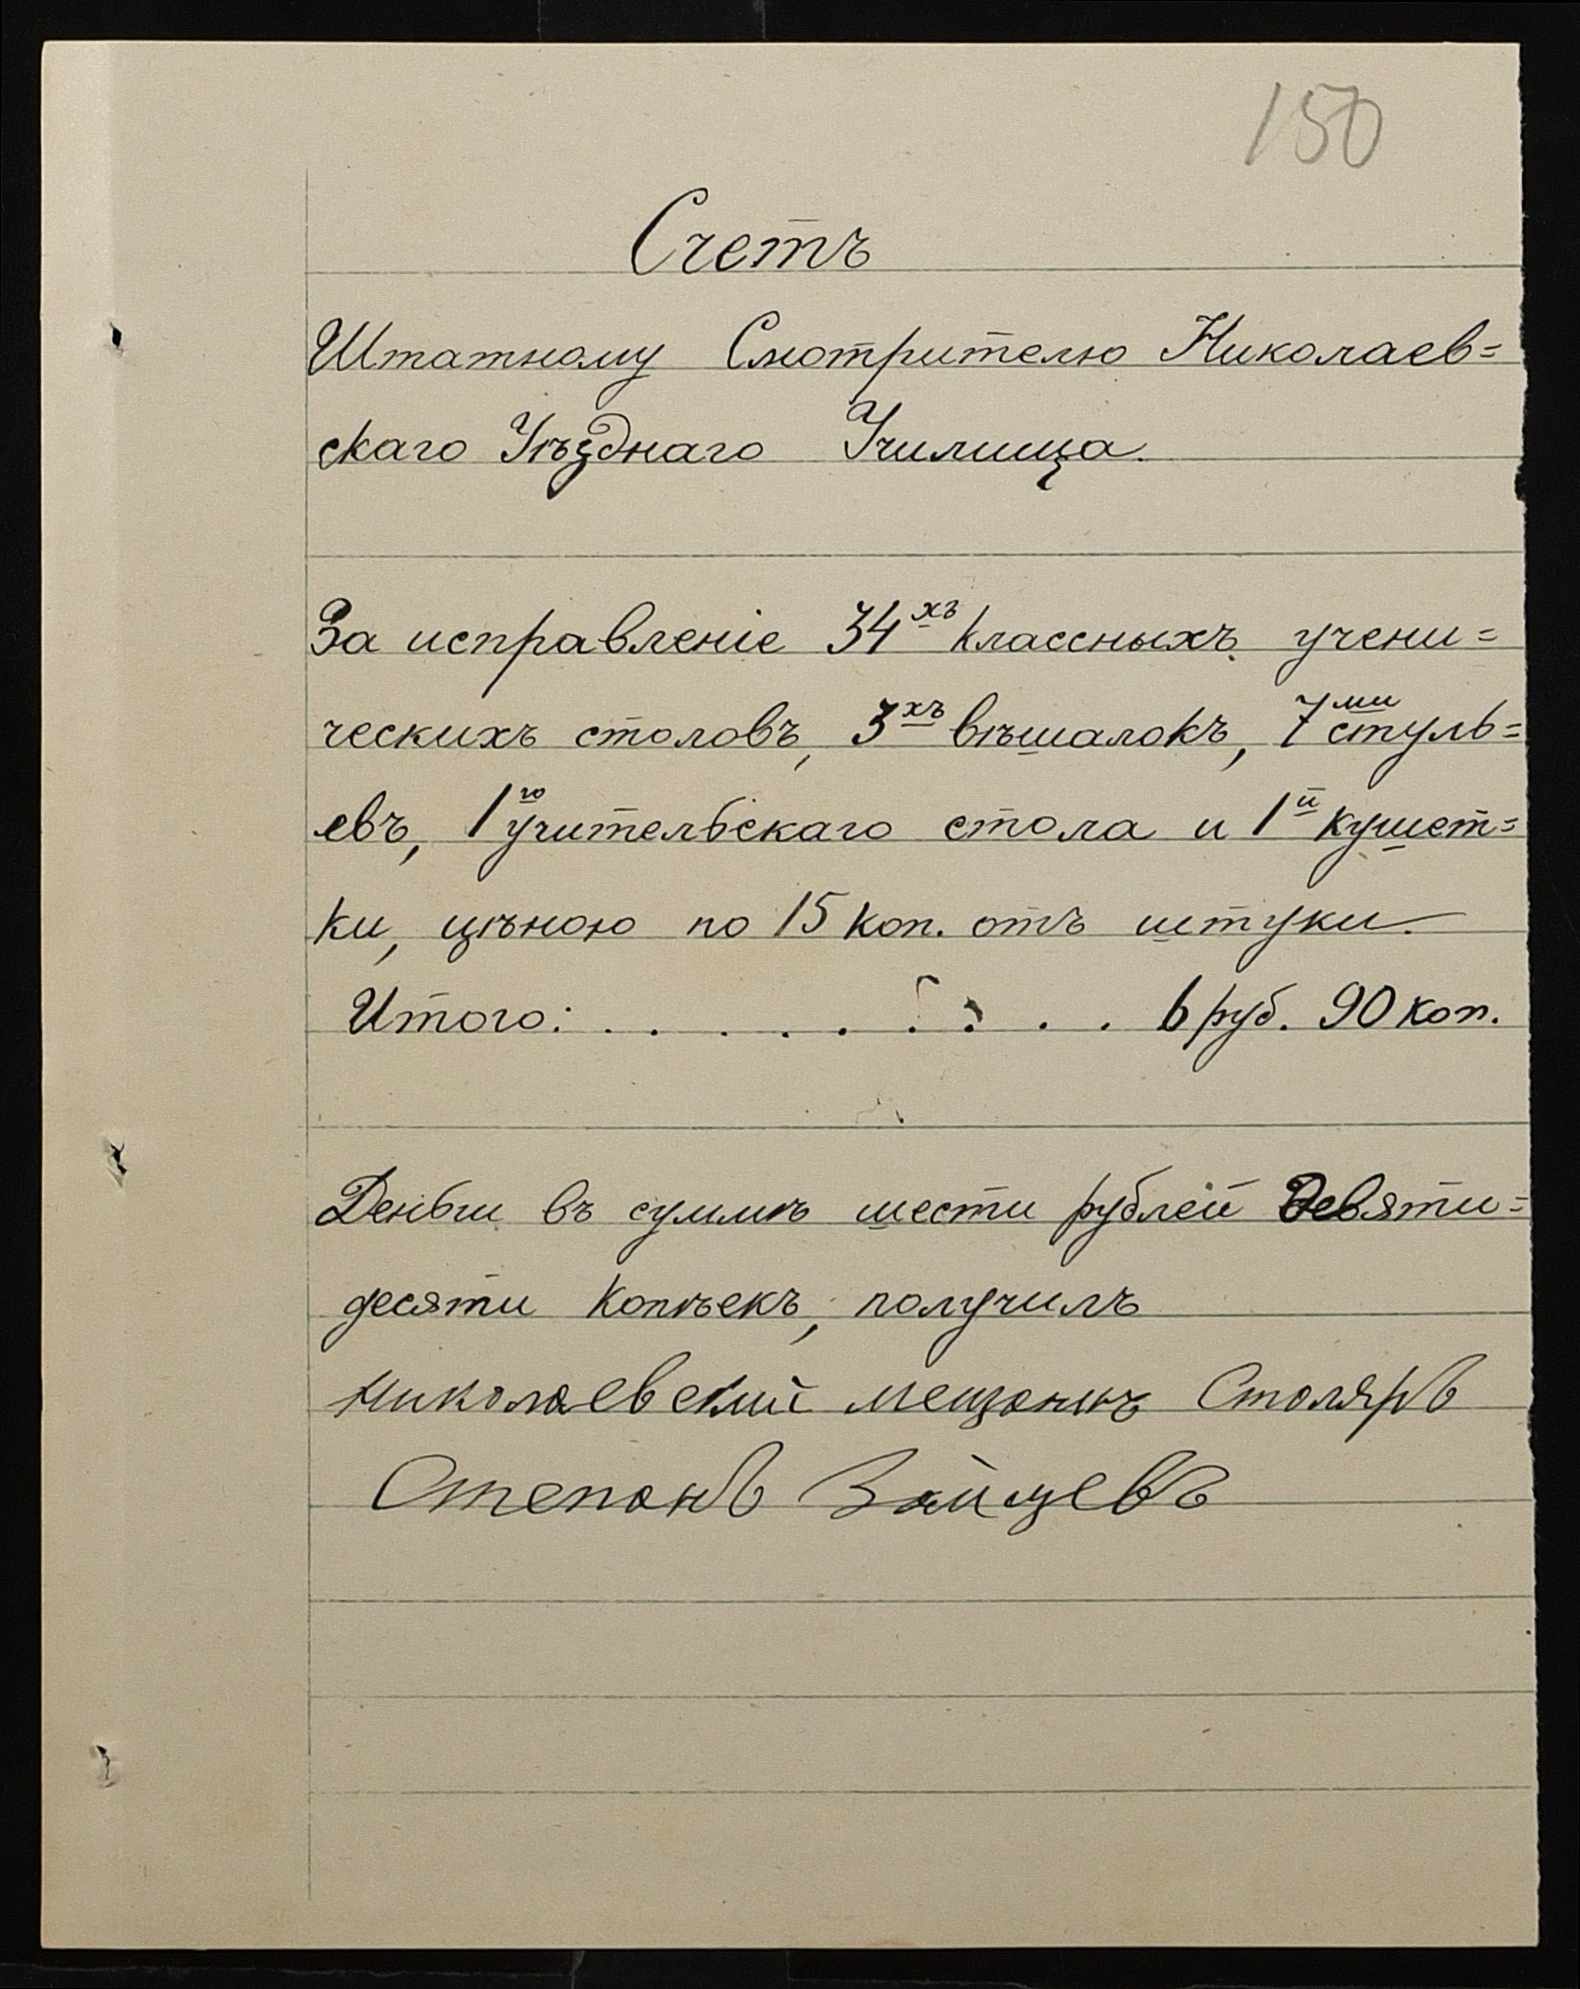 150
Счетъ
Штатному Смотрителю Николаев=
скаго Уѣзднаго Училища.
За исправленіе 34хъ классныхъ учени=
ческихъ столовъ, 3хъ вѣшалокъ, 7ми стуль=
евъ, 1го учительскаго стола и 1й кушет=
ки, цѣною по 15 коп. отъ штуки.
Итого: . . . . . . . . . 6 руб. 90 коп.
Деньги въ суммѣ шести рублей девяти=
десяти копѣекъ, получилъ
Николаевский мещанинъ Столяръ
Степанъ Зайцевъ